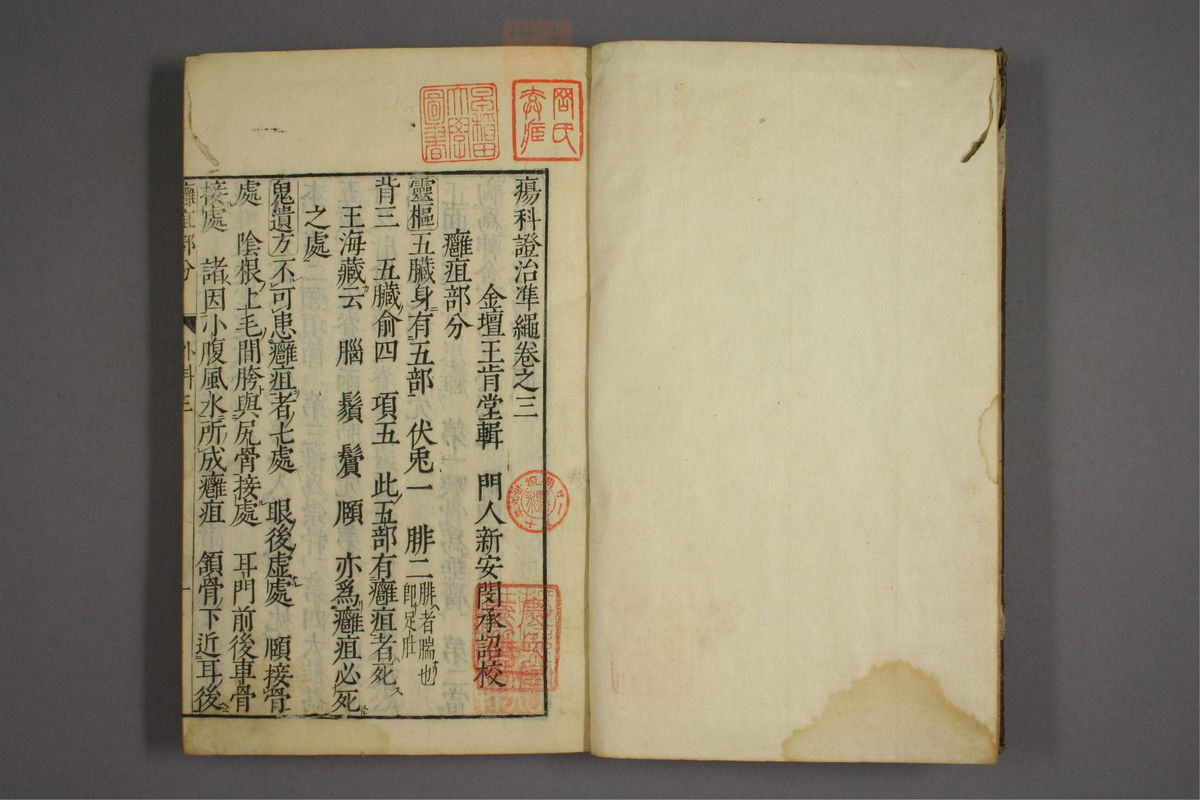 瘍科證治準繩卷之三
金壇王肯堂輯　門人新安閔承詔校
癰疽部分
靈樞五臟身有五部　伏兎一　腓二腓者腨也即足肚
背三　五臟俞四　項五　此五部有癰疽者死
王海藏云　腦　鬚　鬢　頤　亦爲癰疽必死
之處
鬼遺方不可患癰疽者七處　眼後虛處　頤接骨
處　陰根上毛間胯與尻骨接處　耳門前後車骨
接處　諸因小腹風水所成癰疽　頷骨下近耳後
癰疽部分　外科三　一
早稻田大學圖書